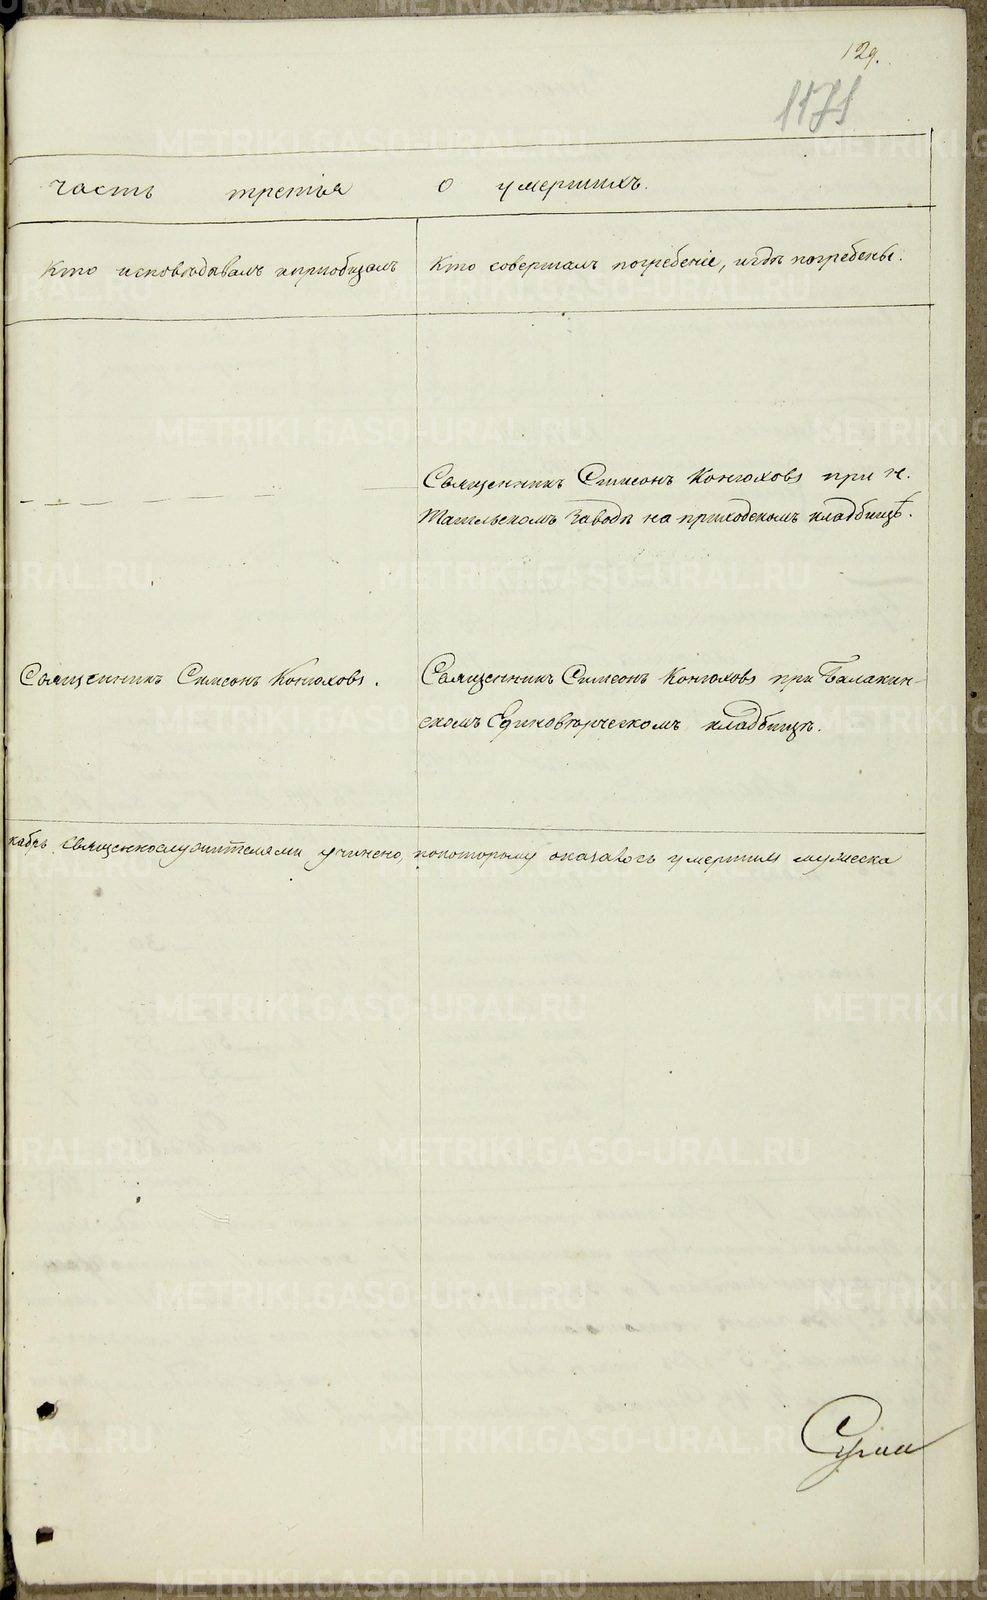 129.
1171
часть третія о умершихъ.
Кто исповѣдывалъ и приобщалъ
Кто совершалъ погребеніе, и гдѣ погребены.
Священникъ Симеонъ Конюховъ при Н.
Тагильскомъ заводѣ на приходскомъ кладбищѣ.
Священникъ Симеонъ Конюховъ.
Священникъ Симеонъ Конюховъ при Балакин-
скомъ Единовѣрческомъ кладбищѣ.
кабрь священнослужителями учинено, покоторому оказалось умершихъ мужеска
METRIKI.GASO-URAL.RU